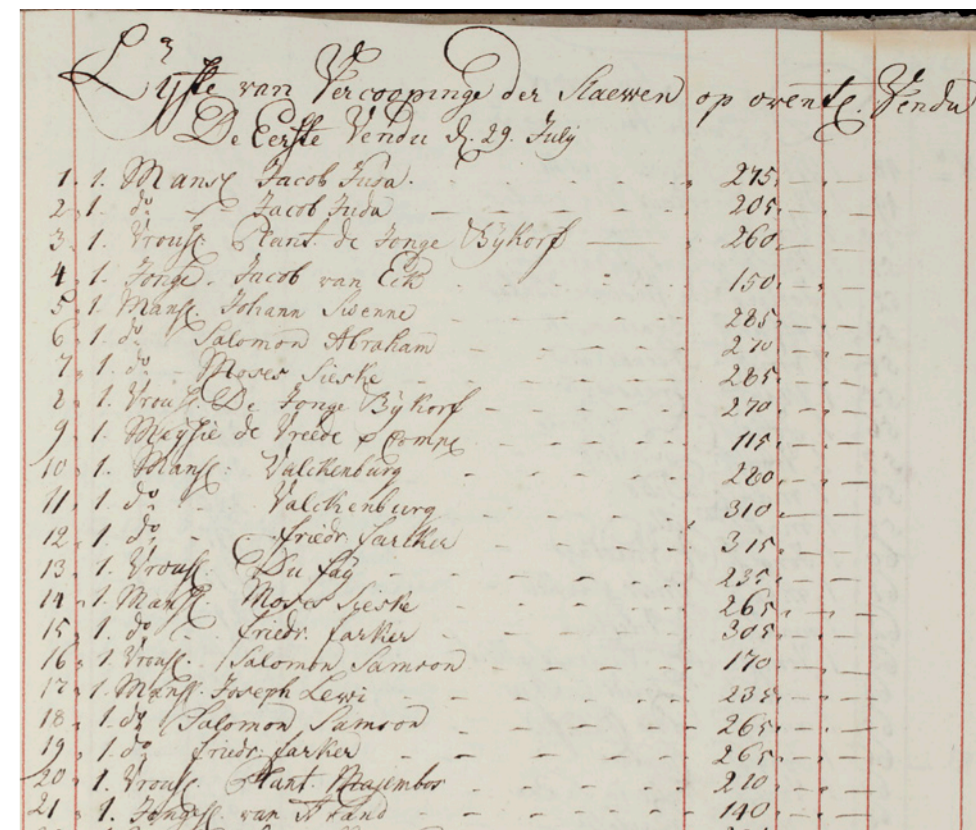 Lyste van Vercoopinge der Slaewen op ovente. Vendu
De Eerste Vendu d. 29. July
1. 1. Mansl Jacob Juda. 275.
2. 1. do Jacob Juda 205.
3. 1. Vrousl: Plant. de Jonge Bijkorf 260.
4. 1. Jonge. Jacob van Eck 150.
5. 1. Mansl. Johann Swenne 285.
6. 1. do Salomon Abraham 270.
7. 1. do Moses Sieske 285.
8. 1. Vrousl. De Jonge Bijkorf 270.
9. 1. Meysie de Vreede & Comp. 115.
10. 1. Mansl: Valckenburg 280.
11. 1. do Valckenburg 310.
12. 1. do friedr. farcker 315.
13. 1. Vrousl. Du faÿ 235.
14. 1. Mansl. Moses Sieske 265.
15. 1. do friedr. farker 305.
16. 1. Vrousl. Salomon Samson 170.
17. 1. Mansl. Joseph Lewi 235.
18. 1. do Salomon Samson 265.
19. 1. do friedr: farker 265.
20. 1. Vrousl. Plant. Masembos 210.
21. 1. Jongsl. van 140.